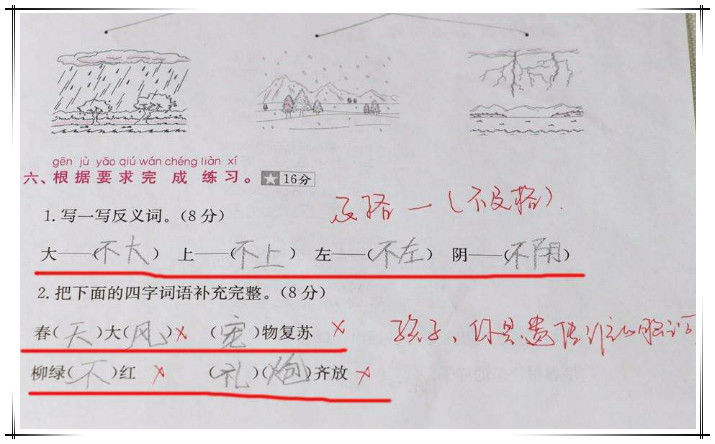 gēn jù yāo qiú wán chéng liàn xí
六、根据要求完成练习。★16分
及格一(不及格).
1.写一写反义词。(8分)
大——(不大) 上——(不上) 左——(不左) 阴——(不阴)
2.把下面的四字词语补充完整。(8分)
春(天)大(风)× (宠)物复苏 ×
孩子、你是遗传
柳绿(不)红 × (礼)(炮)齐放 ×